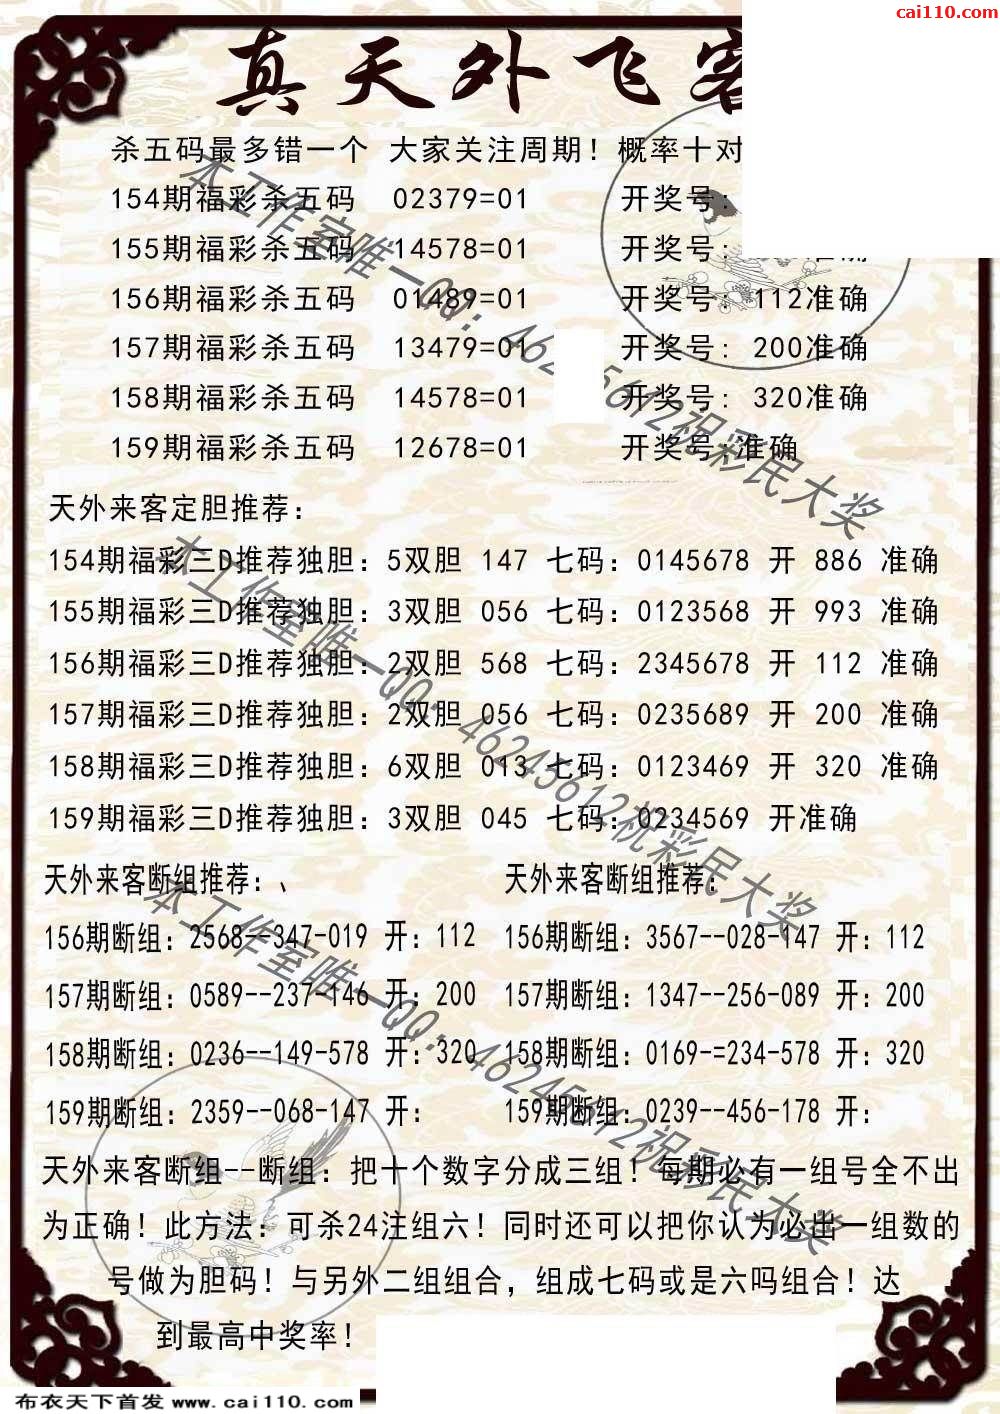 cai110.com
真天外飞客
杀五码最多错一个 大家关注周期！概率十对
154期福彩杀五码 02379=01 开奖号:
155期福彩杀五码 14578=01 开奖号: 准确
156期福彩杀五码 01489=01 开奖号: 112准确
157期福彩杀五码 13479=01 开奖号: 200准确
158期福彩杀五码 14578=01 开奖号: 320准确
159期福彩杀五码 12678=01 开奖号:准确
天外来客定胆推荐：
154期福彩三D推荐独胆：5双胆 147 七码：0145678 开 886 准确
155期福彩三D推荐独胆：3双胆 056 七码：0123568 开 993 准确
156期福彩三D推荐独胆：2双胆 568 七码：2345678 开 112 准确
157期福彩三D推荐独胆：2双胆 056 七码：0235689 开 200 准确
158期福彩三D推荐独胆：6双胆 013 七码：0123469 开 320 准确
159期福彩三D推荐独胆：3双胆 045 七码：0234569 开准确
天外来客断组推荐：、 天外来客断组推荐：
156期断组：2568--347-019 开：112 156期断组：3567--028-147 开：112
157期断组：0589--237-146 开：200 157期断组：1347--256-089 开：200
158期断组：0236--149-578 开：320 158期断组：0169-=234-578 开：320
159期断组：2359--068-147 开： 159期断组：0239--456-178 开：
天外来客断组--断组：把十个数字分成三组！每期必有一组号全不出
为正确！此方法：可杀24注组六！同时还可以把你认为必出一组数的
号做为胆码！与另外二组组合，组成七码或是六吗组合！达
到最高中奖率！
本工作室唯一QQ：46245612祝彩民大奖
本工作室唯一QQ：46245612祝彩民大奖
本工作室唯一QQ：46245612祝彩民大奖
布衣天下首发 www.cai110.com